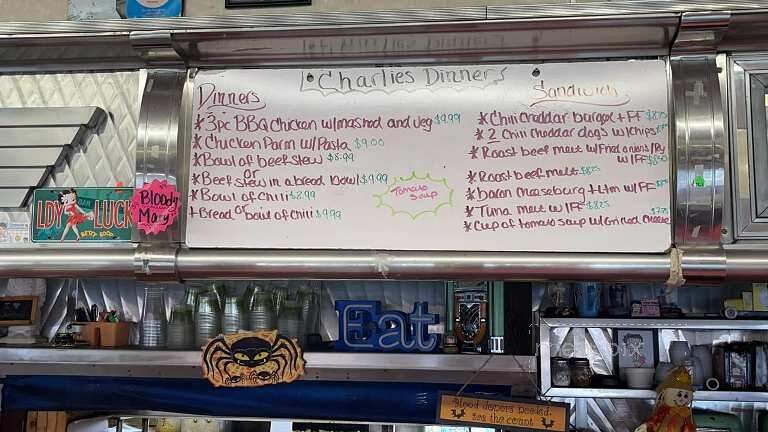 Charlies Dinners
Dinners
*3pc BBQ Chicken w/mashed and veg $9.99
*Chicken Parm w/Pasta $9.00
*Bowl of beef stew $8.99
or
*Beef stew in a bread bowl $9.99
*Bowl of Chili $8.99
or
+Bread bowl of chili $9.99
Tomato
Soup
Sandwich
*Chili Cheddar burger + FF
*2 Chili cheddar dogs w/Chips
*Roast beef melt w/Fried onions/
w/FF $8.50
*Roast beef melt $8.25
*bacon cheeseburg + Ltm w/FF
*Tuna melt w/FF $8.25
*Cup of tomato soup w/Grilled Cheese
LDY LUCK
BETTY BOOP
Bloody
Mary
Eat
Blood donors needed.
see the count